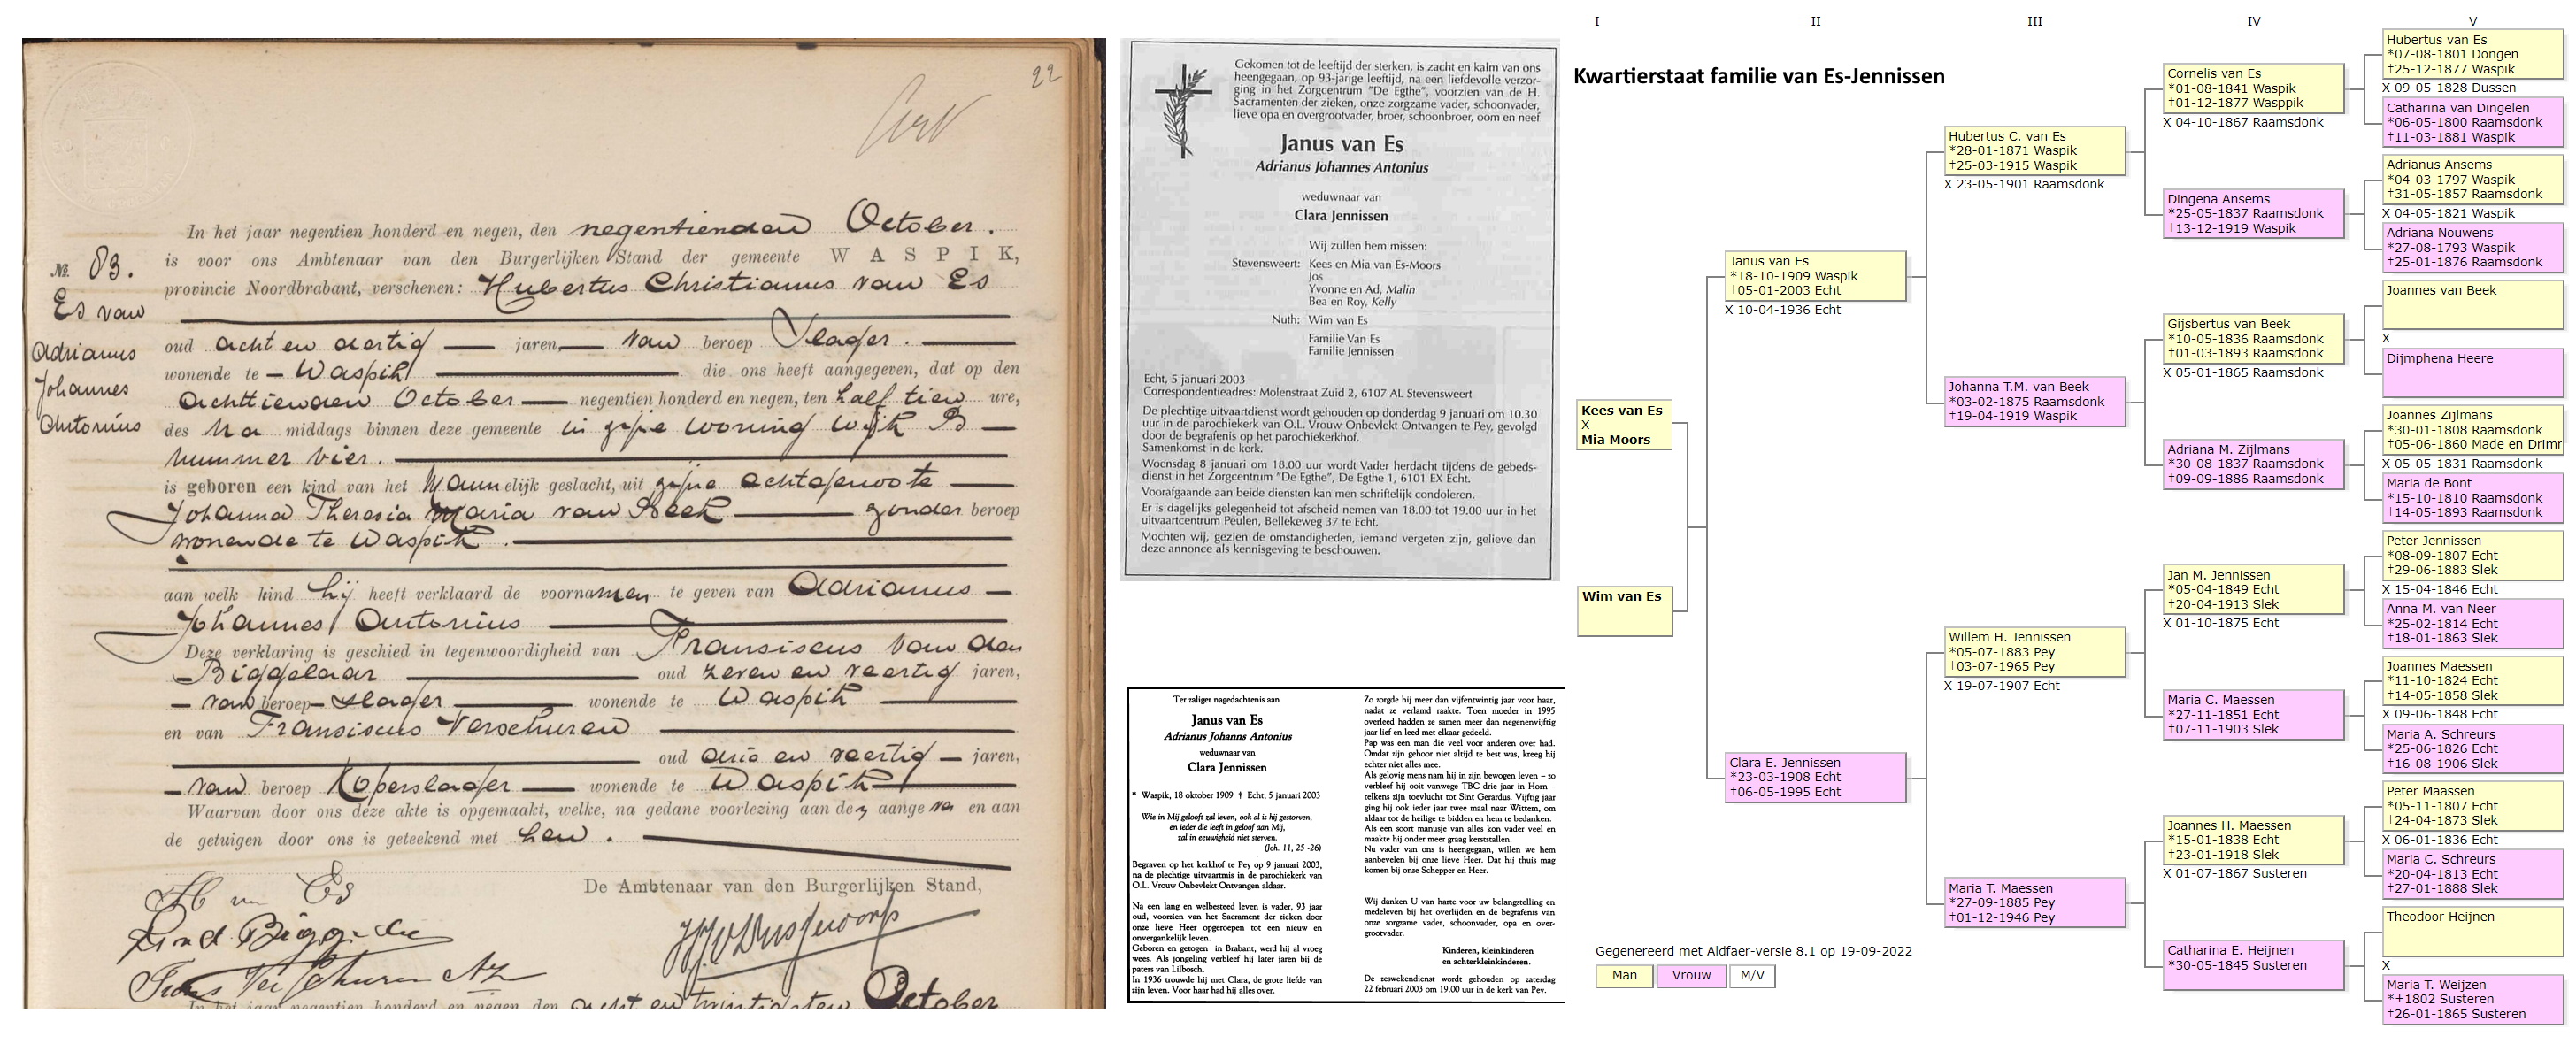 22
In het jaar negentien honderd en negen, den negentienden October.
is voor ons Ambtenaar van den Burgerlijken Stand der gemeente WASPIK,
provincie Noordbrabant, verschenen: Hubertus Christianus van Es
oud acht en dertig jaren, van beroep Slager.
wonende te Waspik die ons heeft aangegeven, dat op den
achttienden October negentien honderd en negen, ten half tien ure,
des na middags binnen deze gemeente in zijne woning wijk B
nummer vier.
is geboren een kind van het Mannelijk geslacht, uit zijne echtgenoote
Johanna Theresia Maria van Beek zonder beroep
wonende te Waspik.
aan welk kind hij heeft verklaard de voornamen te geven van Adrianus
Johannes Antonius
Deze verklaring is geschied in tegenwoordigheid van Fransiscus van den
Biggelaar oud zeven en veertig jaren,
van beroep slager wonende te Waspik
en van Fransiscus Verschuren
oud drie en veertig jaren,
van beroep Koperslager wonende te Waspik
Waarvan door ons deze akte is opgemaakt, welke, na gedane voorlezing aan den aangever en aan
de getuigen door ons is geteekend met hen.
De Ambtenaar van den Burgerlijken Stand,
H van Es
In het jaar negentien honderd en negen den acht en twintigsten October
No. 83.
Es van
Adrianus
Johannes
Antonius
Gekomen tot de leeftijd der sterken, is zacht en kalm van ons
heengegaan, op 93-jarige leeftijd, na een liefdevolle verzor-
ging in het Zorgcentrum "De Egthe", voorzien van de H.
Sacramenten der zieken, onze zorgzame vader, schoonvader,
lieve opa en overgrootvader, broer, schoonbroer, oom en neef
Janus van Es
Adrianus Johannes Antonius
weduwnaar van
Clara Jennissen
Wij zullen hem missen:
Stevensweert: Kees en Mia van Es-Moors
Jos
Yvonne en Ad, Malin
Bea en Roy, Kelly
Nuth: Wim van Es
Familie Van Es
Familie Jennissen
Echt, 5 januari 2003
Correspondentieadres: Molenstraat Zuid 2, 6107 AL Stevensweert
De plechtige uitvaartdienst wordt gehouden op donderdag 9 januari om 10.30
uur in de parochiekerk van O.L. Vrouw Onbevlekt Ontvangen te Pey, gevolgd
door de begrafenis op het parochiekerkhof.
Samenkomst in de kerk.
Woensdag 8 januari om 18.00 uur wordt Vader herdacht tijdens de gebeds-
dienst in het Zorgcentrum "De Egthe", De Egthe 1, 6101 EX Echt.
Voorafgaande aan beide diensten kan men schriftelijk condoleren.
Er is dagelijks gelegenheid tot afscheid nemen van 18.00 tot 19.00 uur in het
uitvaartcentrum Peulen, Bellekeweg 37 te Echt.
Mochten wij, gezien de omstandigheden, iemand vergeten zijn, gelieve dan
deze annonce als kennisgeving te beschouwen.
Ter zaliger nagedachtenis aan
Janus van Es
Adrianus Johanns Antonius
weduwnaar van
Clara Jennissen
* Waspik, 18 oktober 1909 † Echt, 5 januari 2003
Wie in Mij gelooft zal leven, ook al is hij gestorven,
en ieder die leeft in geloof aan Mij,
zal in eeuwigheid niet sterven.
(Joh. 11, 25 -26)
Begraven op het kerkhof te Pey op 9 januari 2003,
na de plechtige uitvaartmis in de parochiekerk van
O.L. Vrouw Onbevlekt Ontvangen aldaar.
Na een lang en welbesteed leven is vader, 93 jaar
oud, voorzien van het Sacrament der zieken door
onze lieve Heer opgeroepen tot een nieuw en
onvergankelijk leven.
Geboren en getogen in Brabant, werd hij al vroeg
wees. Als jongeling verbleef hij later jaren bij de
paters van Lilbosch.
In 1936 trouwde hij met Clara, de grote liefde van
zijn leven. Voor haar had hij alles over.
Zo zorgde hij meer dan vijfentwintig jaar voor haar,
nadat ze verlamd raakte. Toen moeder in 1995
overleed hadden ze samen meer dan negenenvijftig
jaar lief en leed met elkaar gedeeld.
Pap was een man die veel voor anderen over had.
Omdat zijn gehoor niet altijd te best was, kreeg hij
echter niet alles mee.
Als gelovig mens nam hij in zijn bewogen leven – zo
verbleef hij ooit vanwege TBC drie jaar in Horn –
telkens zijn toevlucht tot Sint Gerardus. Vijftig jaar
ging hij ook ieder jaar twee maal naar Wittem, om
aldaar tot de heilige te bidden en hem te bedanken.
Als een soort manusje van alles kon vader veel en
maakte hij onder meer graag kerststallen.
Nu vader van ons is heengegaan, willen we hem
aanbevelen bij onze lieve Heer. Dat hij thuis mag
komen bij onze Schepper en Heer.
Wij danken U van harte voor uw belangstelling en
medeleven bij het overlijden en de begrafenis van
onze zorgzame vader, schoonvader, opa en over-
grootvader.
Kinderen, kleinkinderen
en achterkleinkinderen.
De zeswekendienst wordt gehouden op zaterdag
22 februari 2003 om 19.00 uur in de kerk van Pey.
I II III IV V
Kwartierstaat familie van Es-Jennissen
Kees van Es
X
Mia Moors
Wim van Es
Janus van Es
*18-10-1909 Waspik
†05-01-2003 Echt
X 10-04-1936 Echt
Clara E. Jennissen
*23-03-1908 Echt
†06-05-1995 Echt
Hubertus C. van Es
*28-01-1871 Waspik
†25-03-1915 Waspik
X 23-05-1901 Raamsdonk
Johanna T.M. van Beek
*03-02-1875 Raamsdonk
†19-04-1919 Waspik
Willem H. Jennissen
*05-07-1883 Pey
†03-07-1965 Pey
X 19-07-1907 Echt
Maria T. Maessen
*27-09-1885 Pey
†01-12-1946 Pey
Cornelis van Es
*01-08-1841 Waspik
†01-12-1877 Wasppik
X 04-10-1867 Raamsdonk
Dingena Ansems
*25-05-1837 Raamsdonk
†13-12-1919 Waspik
Gijsbertus van Beek
*10-05-1836 Raamsdonk
†01-03-1893 Raamsdonk
X 05-01-1865 Raamsdonk
Adriana M. Zijlmans
*30-08-1837 Raamsdonk
†09-09-1886 Raamsdonk
Jan M. Jennissen
*05-04-1849 Echt
†20-04-1913 Slek
X 01-10-1875 Echt
Maria C. Maessen
*27-11-1851 Echt
†07-11-1903 Slek
Joannes H. Maessen
*15-01-1838 Echt
†23-01-1918 Slek
X 01-07-1867 Susteren
Catharina E. Heijnen
*30-05-1845 Susteren
Hubertus van Es
*07-08-1801 Dongen
†25-12-1877 Waspik
X 09-05-1828 Dussen
Catharina van Dingelen
*06-05-1800 Raamsdonk
†11-03-1881 Waspik
Adrianus Ansems
*04-03-1797 Waspik
†31-05-1857 Raamsdonk
X 04-05-1821 Waspik
Adriana Nouwens
*27-08-1793 Waspik
†25-01-1876 Raamsdonk
Joannes van Beek
X
Dijmphena Heere
Joannes Zijlmans
*30-01-1808 Raamsdonk
†05-06-1860 Made en Drimr
X 05-05-1831 Raamsdonk
Maria de Bont
*15-10-1810 Raamsdonk
†14-05-1893 Raamsdonk
Peter Jennissen
*08-09-1807 Echt
†29-06-1883 Slek
X 15-04-1846 Echt
Anna M. van Neer
*25-02-1814 Echt
†18-01-1863 Slek
Joannes Maessen
*11-10-1824 Echt
†14-05-1858 Slek
X 09-06-1848 Echt
Maria A. Schreurs
*25-06-1826 Echt
†16-08-1906 Slek
Peter Maassen
*05-11-1807 Echt
†24-04-1873 Slek
X 06-01-1836 Echt
Maria C. Schreurs
*20-04-1813 Echt
†27-01-1888 Slek
Theodoor Heijnen
X
Maria T. Weijzen
*±1802 Susteren
†26-01-1865 Susteren
Gegenereerd met Aldfaer-versie 8.1 op 19-09-2022
Man Vrouw M/V